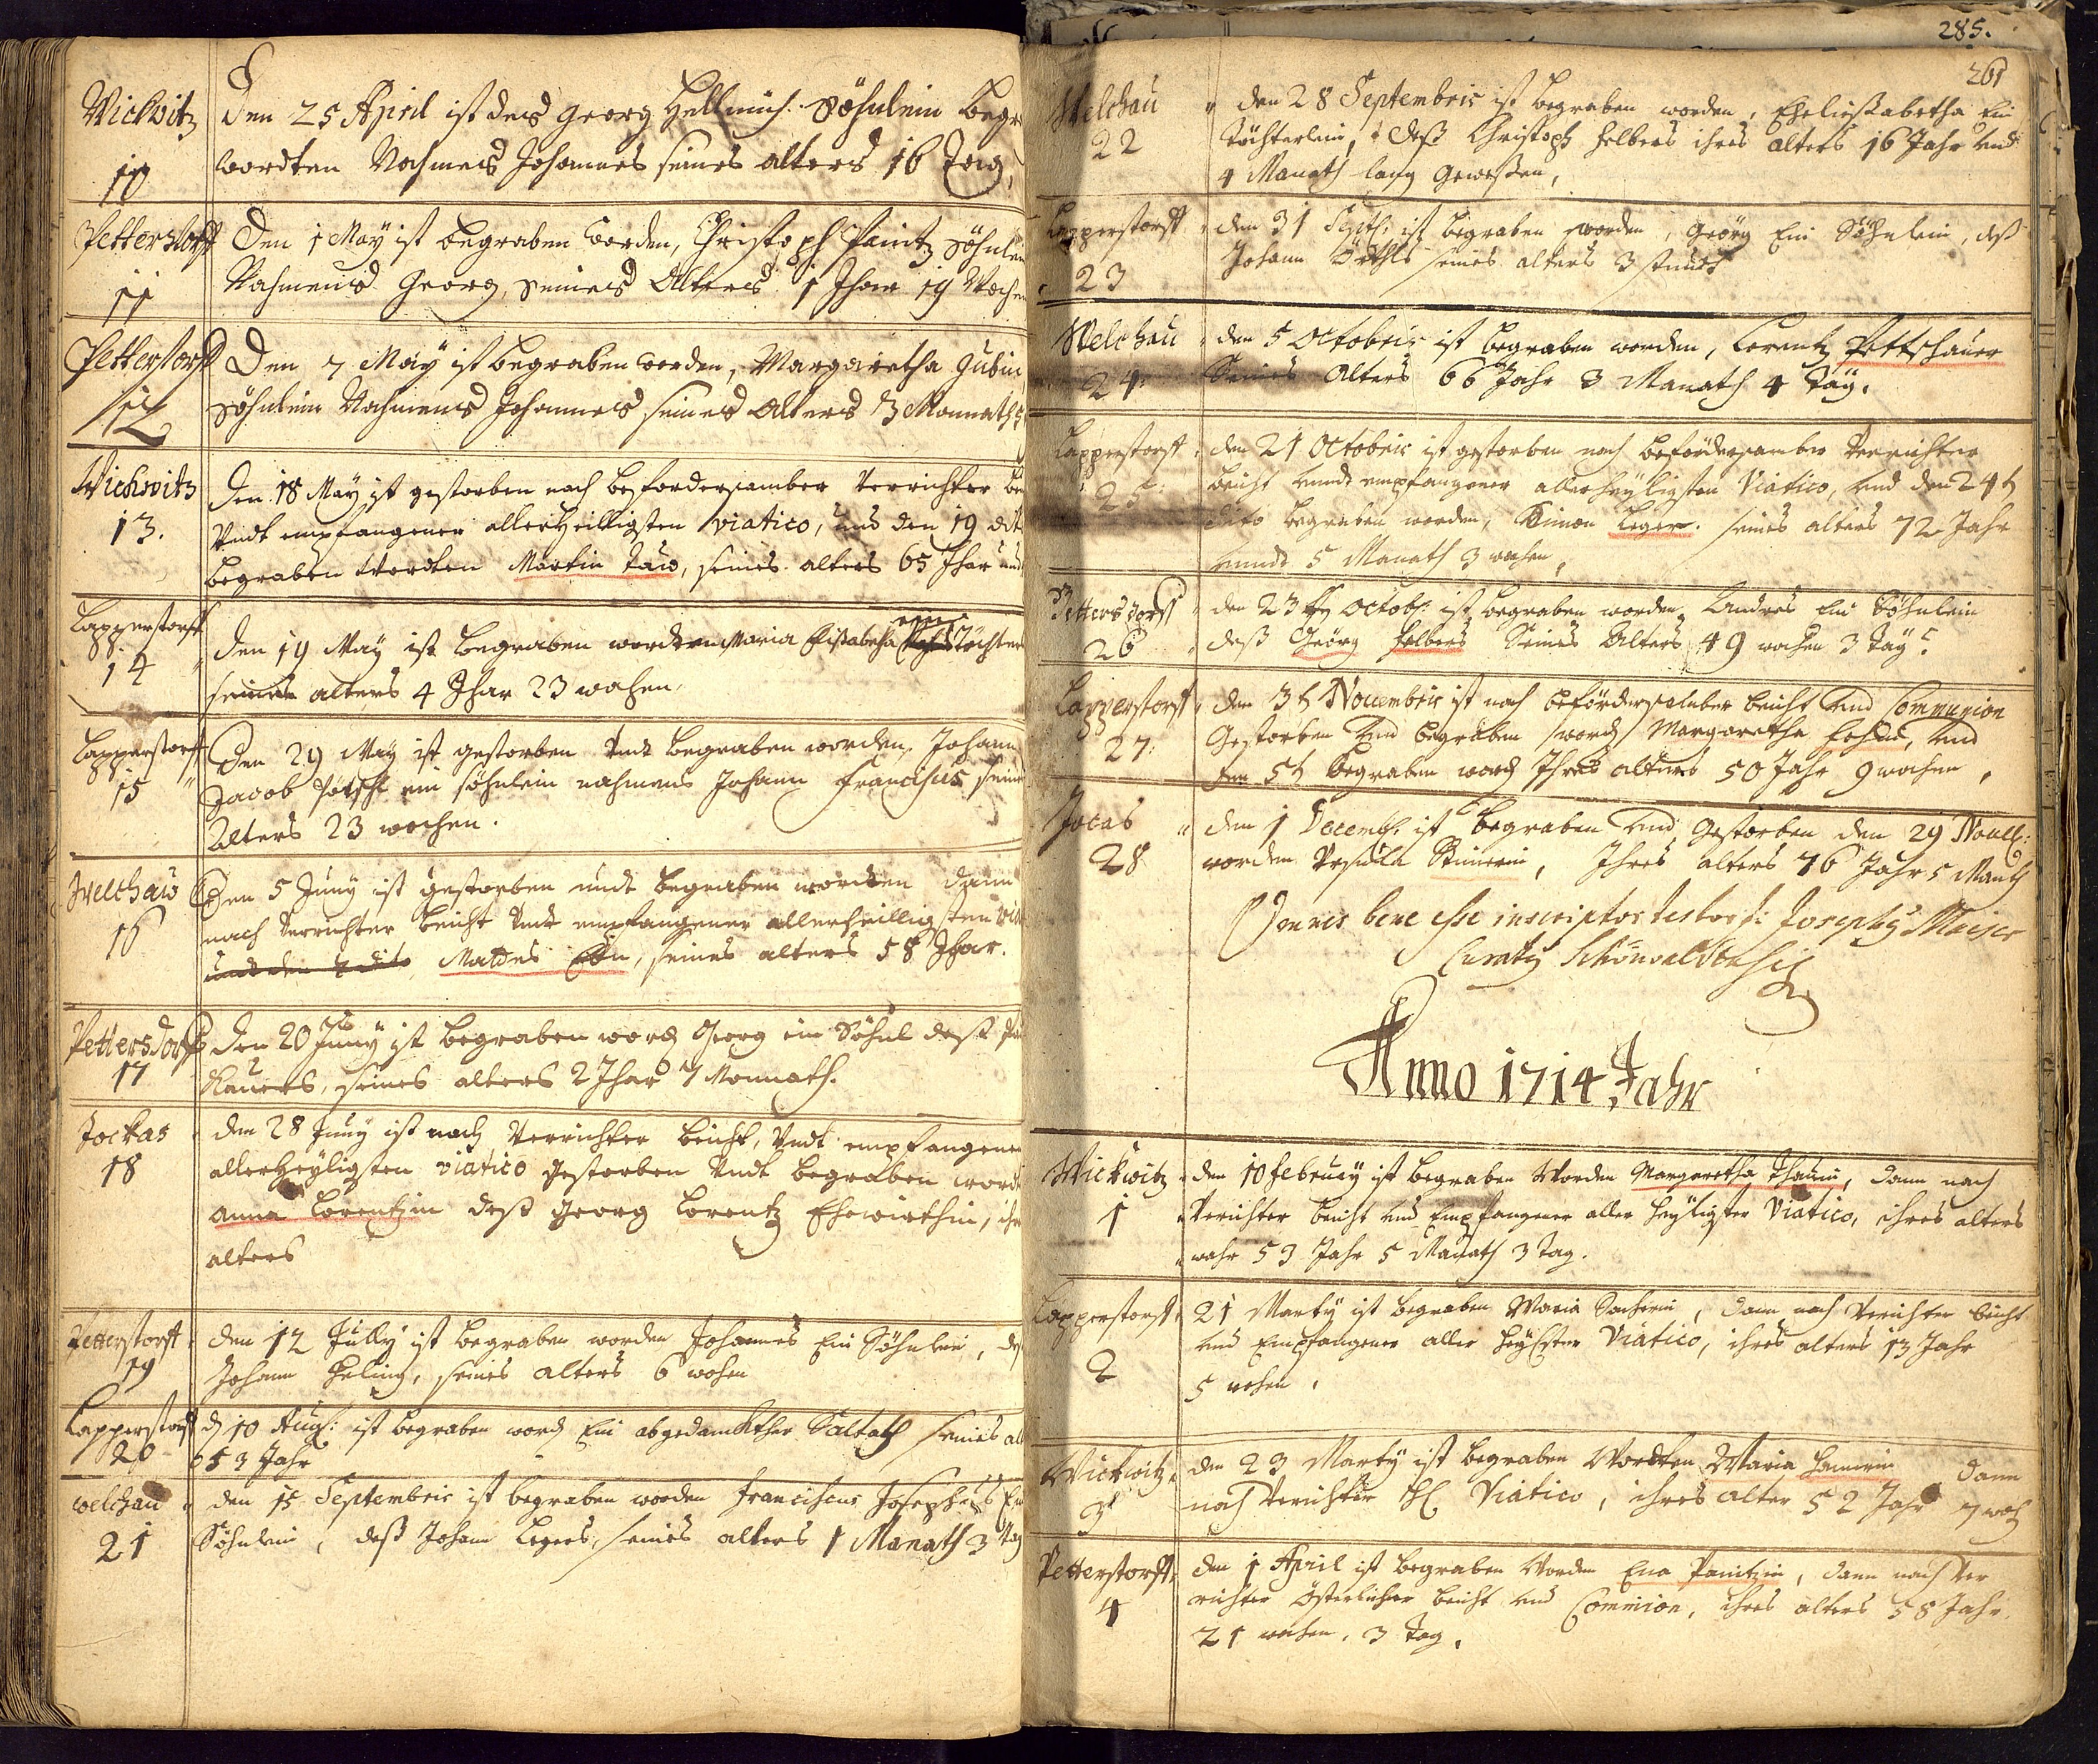 Wickwitz
10
Den 25 April ist des Georg Hellmich Söhnlein begr
wordten Nahmens Johannes seines alters 16 Tag,
Petterstorff
11
Den 1 May ist begraben worden, Christoph Paintz Söhnlein
Nahmens Georg, seines Alters 1 Jhar 19 Wochen
Petterstorff
12
Den 7 May ist begraben worden, Margaretha
Söhnlein Nahmens Johannes seines Alters 3 Monnath
Wickwitz
13.
Den 18 May ist gestorben nach befordersamber Verrichter
Undt empfangener allerheilligsten viatico, und den 19 dit
begraben wordten Martin Taus, seines alters 65 Jhar und
Lapperstorff
14
Den 19 May ist begraben wordten Maria Elisabetha ein Töchter
seines alters 4 Jhar 23 wochen
Lapperstorff
15
Den 29 May ist gestorben Undt begraben worden, Johann
Jacob ein söhnlein nahmens Johann Franciscus seines
Alters 23 wochen.
Welchau
16
Den 5 Juny ist gestorben undt begraben worden dann
nach Verrichter beicht Undt empfangener allerheilligsten
undt den 7 dito Mattes seines alters 58 Jhar.
Pettersdorff
17
Den 20 Juny ist begraben word Georg ein Söhnl deß
seines alters 2 Jhar 7 Monnath.
Jockas
18
den 28 Juny ist nach Verrichter beicht, Undt empfangener
allerheyligsten viatico gestorben Undt begraben word
Anna Lorentzin deß Georg Lorentz Ehewirthin, ihr
alters
Petterstorff
19
den 12 Jully ist begraben worden Johannes Ein Söhnlein, deß
Johann seines alters 6 wohen
Lapperstorff
20
d 10 Aug: ist begraben word Ein abgedanckther Saltath seines alt
53 Jahr
Welchau
21
den 15 Septembris ist begraben worden Franciscus Josephus Ein
Söhnlein, deß Johann Legers, seines alters 1 Manath 3 tag
285.
261
Welchau
22
den 28 Septembris ist begraben worden, Ein
töchterlein, deß Christoph Helbers ihres alters 16 Jahr und
4 Manath lang Geweßen,
Lapperstorff
23
den 31 Septb: ist begraben worden, Geörg Ein Söhnlein, deß
Johann seines alters 3 stundt
Welchau
24.
den 5 Octobris ist begraben worden, Lorentz Pettschauer
Seines Alters 66 Jahr 3 Manath 4 Täg.
Lapperstorff
25
den 21 Octobris ist gestorben nach beförderßamber Verrichter
beicht unndt empfangener allerheyligsten Viatico, und den 24t
dito begraben worden, Simon Leger. seines alters 72 Jahr
unndt 5 Manath 3 wohen,
Pettersdorff
26
den 23 Octob: ist begraben worden, Andres Ein Söhnlein
deß Geörg Helbers Seines Alters 49 wochen 3 Täg.
Lapperstorff
27.
den 3t Nouembris ist nach beförderßamber beicht und Communion
Gestorben und begraben word Margaretha und
den 5t begraben word Ihres alters 50 Jahr 9 wochen,
Jocas
28
den 1 Decemb: ist begraben und Gestorben den 29 Noue:
worden Vrsula Ihres alters 76 Jahr 5 Manth
Omnes bene esse inscriptos testor: Josephus
Curatus Schönwaldensis
Anno 1714 Jahr
Wickwitz
1
den 10 February ist begraben Worden Margaretha Thausin, dann nach
Verichter beicht und Empfangener aller heyligster Viatico, ihres alters
wahr 53 Jahr 5 Manath 3 tag.
Lapperstorff
2
21 Marty ist begraben Maria dann nach Verichter beicht
und Empfangener aller Viatico, ihres alters 13 Jahr
5 wohen,
Wickwitz
3
den 23 Marty ist begraben Wordten Maria dann
nach Verichter Viatico, ihres alter 52 Jahr 7 woh
Petterstorff
4
den 1 April ist begraben Worden Eua Paintzin, dann nach Ver
richter österlicher beicht und Commion, ihres alters 58 Jahr
21 wochen, 3 tag,